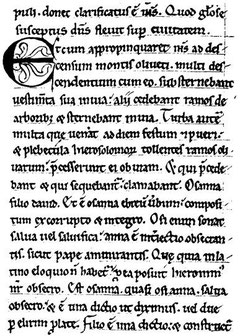 puli. donec clarificatus ē iħs. Quod gl'ose
susceptus dīns fleuit sup ciuitatem.
Et cum appropinquaret iħs ad des
censum montis oliueti. multi des
cendentium cum eo. substernebant
uestimta sua in uia. alij cedebant ramos de
arboribȝ & sternebant in uia. Turba autē
multa que uenāt ad diem festum & pueri
& plebecula hierosolomorȝ tollentes ramos oli
uarum. pcesserunt ei obuiam. & qui pcede
bant & qui sequebant' clamabant. Osanna
filio dauid. Et ē osanna ebreū ūbum composi
tum ex corrupto & integro. Osi enim sonat
salua uel saluifica. anna ē intiectio obsecran
tis. sicut pape amirantis. Que quia in la
tino eloquio n̄ habet' ea posuit hieronim'
obsecro. Est osanna. quasi osi anna. salua
obsecro. & ē una dictio ut diximus. uel due
p elisim plate. Filio ē una dictio, ex constructōe